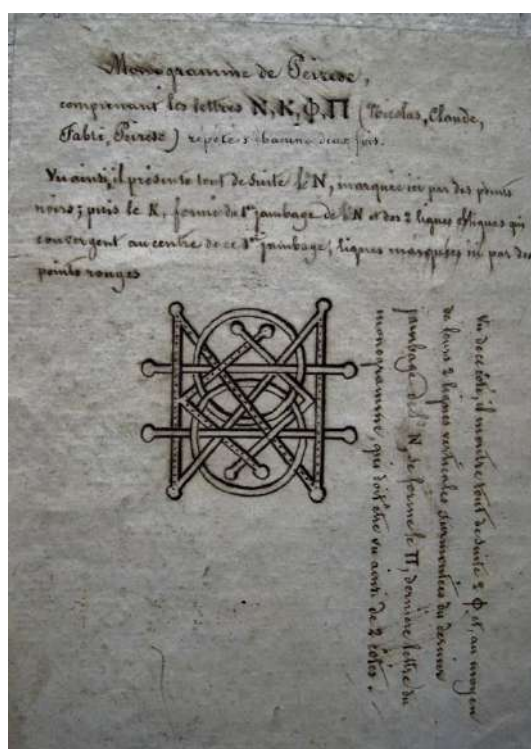 Monogramme de Peiresc,
comprenant les lettres N, K, Φ, Π (Nicolas, Claude,
Fabri, Peiresc) répétés chacune deux fois.
Vu ainsi, il présente tout de suite l'N, marquée ici par des points
noirs; puis le K, formé du 1er jambage de l'N et des 2 lignes obliques qui
convergent au centre de ce 1er jambage, lignes marquées ici par des
points rouges
Vu de ce côté, il montre tout de suite 2 Φ, et, au moyen
de leurs 2 lignes verticales surmontées du dernier
jambage de l'N, se forme le Π, dernière lettre du
monogramme, qui doit être vu ainsi de 2 côtés.